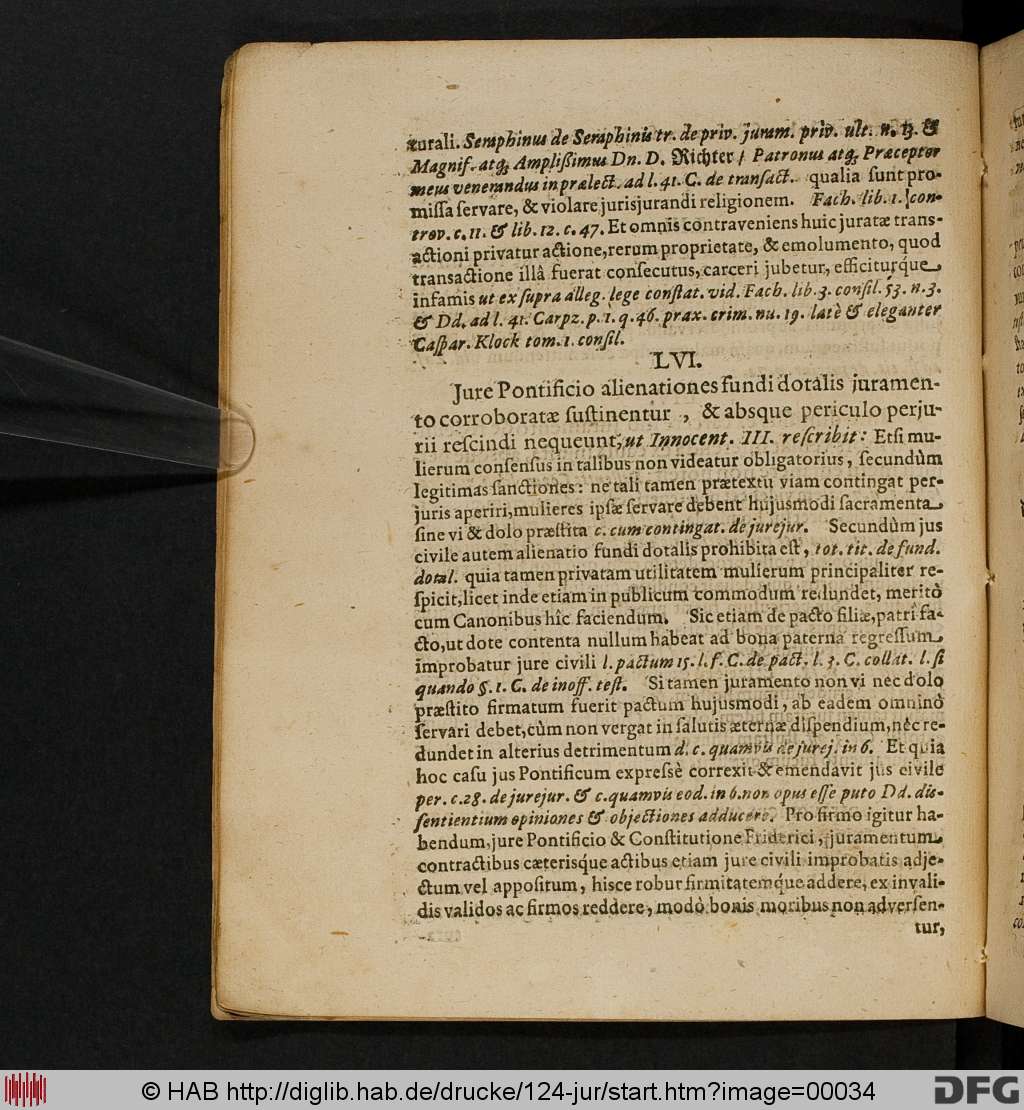 turali. Seraphinus de Seraphinis tr. de priv. juram. priv. ult. n. 13. &
Magnif. atq; Amplißimus Dn. D. Richter / Patronus atq; Præceptor
meus venerandus in prælect. ad l. 41. C. de transact. qualia sunt pro-
missa servare, & violare jurisjurandi religionem. Fach. lib. 1. con-
trov. c. 11. & lib. 12. c. 47. Et omnis contraveniens huic juratæ trans-
actioni privatur actione, rerum proprietate, & emolumento, quod
transactione illâ fuerat consecutus, carceri jubetur, efficiturq́ue
infamis ut ex supra alleg. lege constat. vid. Fach. lib. 3. consil. 53. n. 3.
& Dd. ad l. 41. Carpz. p. 1. q. 46. prax. crim. nu. 19. latè & eleganter
Caspar. Klock tom. 1. consil.
LVI.
Jure Pontificio alienationes fundi dotalis juramen-
to corroboratæ sustinentur, & absque periculo perju-
rii rescindi nequeunt, ut Innocent. III. rescribit: Etsi mu-
lierum consensus in talibus non videatur obligatorius, secundùm
legitimas sanctiones: ne tali tamen prætextu viam contingat per-
juris aperiri, mulieres ipsæ servare debent hujusmodi sacramenta
sine vi & dolo præstita c. cum contingat. de jurejur. Secundùm jus
civile autem alienatio fundi dotalis prohibita est, tot. tit. de fund.
dotal. quia tamen privatam utilitatem mulierum principaliter re-
spicit, licet inde etiam in publicum commodum redundet, meritò
cum Canonibus hîc faciendum. Sic etiam de pacto filiæ, patri fa-
cto, ut dote contenta nullum habeat ad bona paterna regressum
improbatur jure civili l. pactum 15. l. f. C. de pact. l. 3. C. collat. l. si
quando §. 1. C. de inoff. test. Si tamen juramento non vi nec dolo
præstito firmatum fuerit pactum hujusmodi, ab eadem omninò
servari debet, cùm non vergat in salutis æternæ dispendium, nec re-
dundet in alterius detrimentum d. c. quamvis de jurej. in 6. Et quia
hoc casu jus Pontificum expressè correxit & emendavit jus civile
per. c. 28. de jurejur. & c. quamvis eod. in 6. non opus esse puto Dd. dis-
sentientium opiniones & objectiones adducere. Pro firmo igitur ha-
bendum, jure Pontificio & Constitutione Friderici, juramentum
contractibus cæterisque actibus etiam jure civili improbatis adje-
ctum vel appositum, hisce robur firmitatemq́ue addere, ex invali-
dis validos ac firmos reddere, modò bonis moribus non adversen-
tur,
© HAB http://diglib.hab.de/drucke/124-jur/start.htm?image=00034
DFG